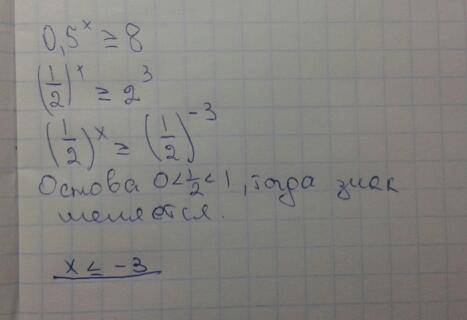 0,5^x ≥ 8
(1/2)^x ≥ 2^3
(1/2)^x ≥ (1/2)^-3
Основа 0<1/2<1, тогда знак
меняется.
x ≤ -3